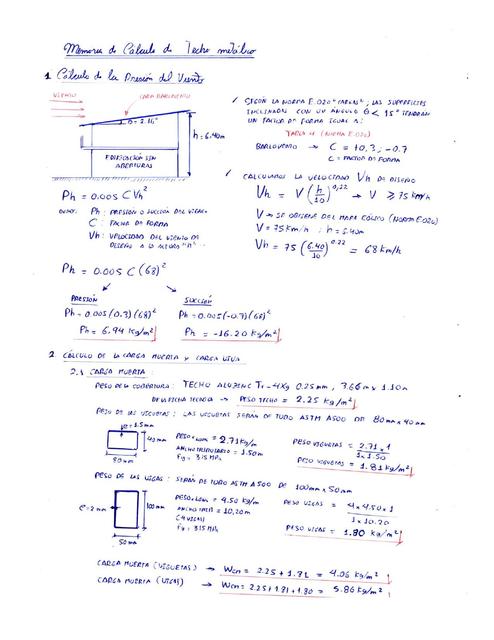 Memoria de Cálculo de Techo metálico
1 Cálculo de la Presión del Viento
VIENTO
CARA BARLOVENTO
θ = 2.16°
h = 6.40m
EDIFICACIÓN SIN
ABERTURAS
✓ SEGÚN LA NORMA E.020 "CARGAS"; LAS SUPERFICIES
INCLINADAS CON UN ÁNGULO θ < 15° TENDRAN
UN FACTOR DE FORMA IGUAL A:
TABLA 4 (NORMA E.020)
BARLOVENTO → C = +0,3 ; -0.7
C = FACTOR DE FORMA
✓ CALCULAMOS LA VELOCIDAD Vh DE DISEÑO
Vh = V (h/10)^0,22 → V ≥ 75 Km/h
V → SE OBTIENE DEL MAPA EÓLICO (NORMA E.020)
V = 75 Km/h ; h = 6.40m
Vh = 75 (6.40/10)^0.22 = 68 Km/h
Ph = 0.005 C Vh²
DONDE: Ph: PRESIÓN O SUCCIÓN DEL VIENTO
C : FACTOR DE FORMA
Vh: VELOCIDAD DEL VIENTO DE
DISEÑO A LA ALTURA "h"
Ph = 0.005 C (68)²
PRESIÓN
Ph = 0.005 (0.3) (68)²
Ph = 6.94 Kg/m²
SUCCIÓN
Ph = 0.005 (-0.7) (68)²
Ph = -16.20 Kg/m²
2. CÁLCULO DE LA CARGA MUERTA Y CARGA VIVA
2.1 CARGA MUERTA:
PESO DE LA COBERTURA: TECHO ALUZINC 0.25 mm, 3.66 m x 1.10m
DE LA FICHA TECNICA → PESO TECHO = 2.25 Kg/m²
PESO DE LAS VIGUETAS: LAS VIGUETAS SERÁN DE TUBO ASTM A500 DE 80mm x 40mm
e = 1.5mm
40 mm
80 mm
PESO x LONG = 2.71 Kg/m
ANCHO TRIBUTARIO = 1.50m
Fy = 315 MPa
PESO VIGUETAS = 2.71 x 1 / 1 x 1.50
PESO VIGUETAS = 1.81 Kg/m²
PESO DE LAS VIGAS: SERÁN DE TUBO ASTM A500 DE 100mm x 50mm
e = 2 mm
100 mm
50 mm
PESO x LONG = 4.50 Kg/m
ANCHO = 10,20m
(4 VIGAS)
Fy = 315 MPa
PESO VIGAS = 4 x 4.50 x 1 / 1 x 10.20
PESO VIGAS = 1.80 Kg/m²
CARGA MUERTA (VIGUETAS) → Wcm = 2.25 + 1.81 = 4.06 Kg/m²
CARGA MUERTA (VIGAS) → Wcm = 2.25 + 1.81 + 1.80 = 5.86 Kg/m²